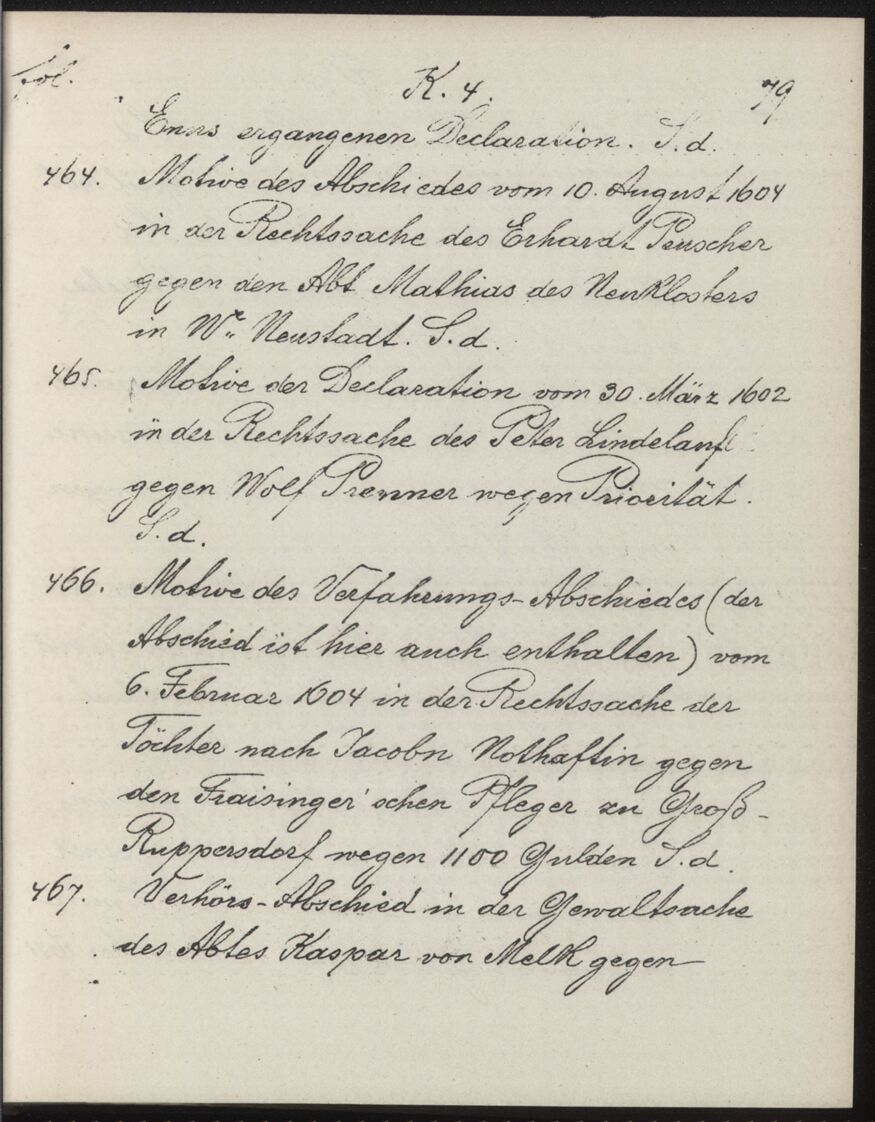 fol. K. 4. 79
Enns ergangenen Declaration. S. d.
464. Motive des Abschiedes vom 10. August 1604
in der Rechtssache des Erhardt Peuscher
gegen den Abt Mathias des Neuklosters
in Wr. Neustadt. S. d.
465. Motive der Declaration vom 30. März 1602
in der Rechtssache des Peter Lindelauf
gegen Wolf Prenner wegen Priorität.
S. d.
466. Motive des Verfahrungs-Abschiedes (der
Abschied ist hier auch enthalten) vom
6. Februar 1604 in der Rechtssache der
Töchter nach Jacobn Nothaftin gegen
den Fraisinger'schen Pfleger zu Groß-
Ruppersdorf wegen 1100 Gulden S. d.
467. Verhörs-Abschied in der Gewaltsache
des Abtes Kaspar von Melk gegen